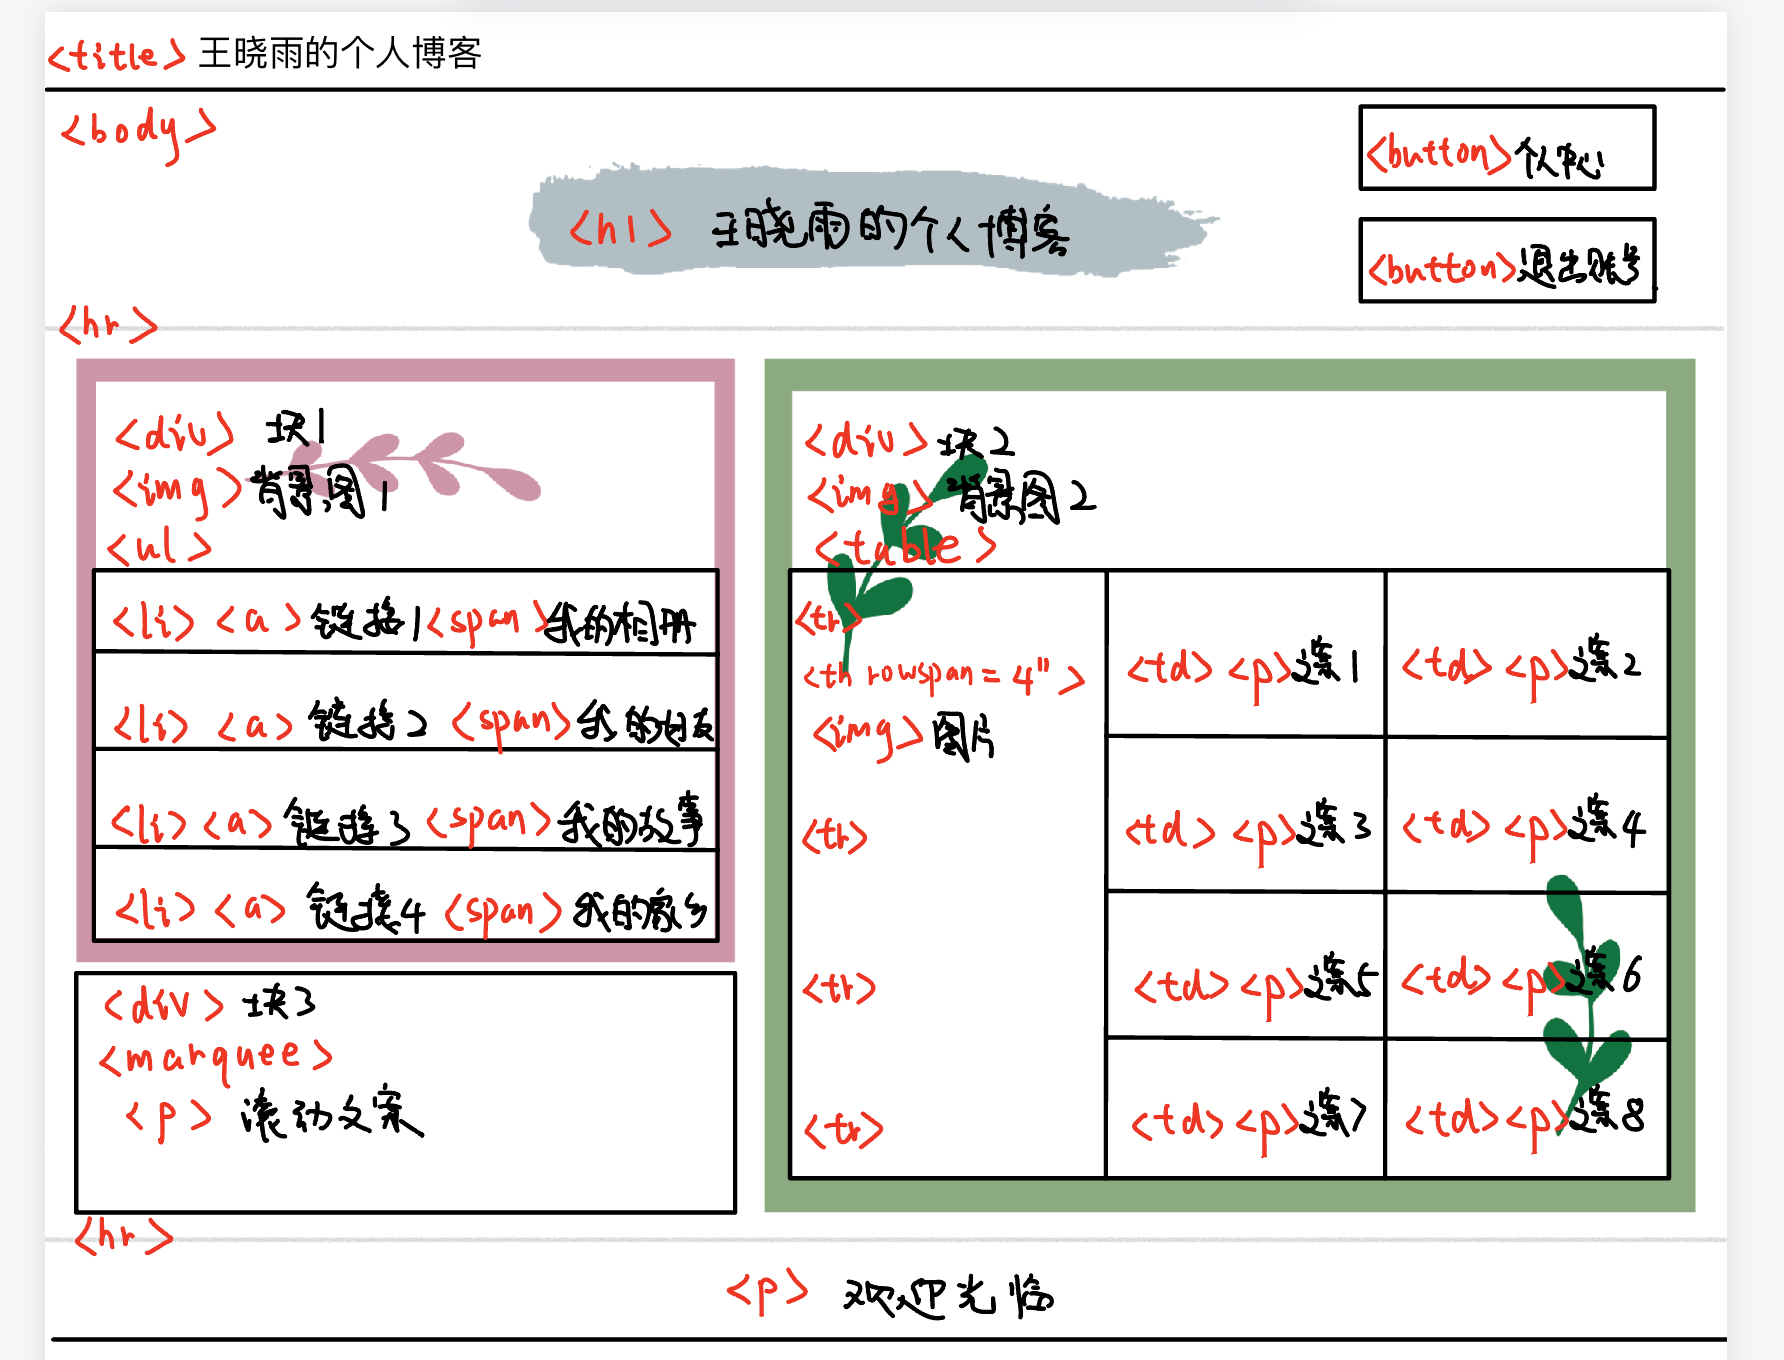 <title> 王晓雨的个人博客
<body>
<button>个人中心
<h1> 王晓雨的个人博客
<button>退出账号
<hr>
<div> 块1
<img>背景图1
<ul>
<li> <a>链接1<span>我的相册
<li> <a> 链接2 <span>我的好友
<li> <a> 链接3 <span>我的故事
<li> <a> 链接4 <span>我的家乡
<div> 块3
<marquee>
<p> 滚动文案
<div>块2
<img> 背景图2
<table>
<tr>
<th rowspan=4">
<img>图片
<td> <p>文案1
<td> <p>文案2
<tr>
<td> <p>文案3
<td> <p>文案4
<tr>
<td> <p>文案5
<td> <p>文案6
<tr>
<td> <p>文案7
<td> <p>文案8
<hr>
<p> 欢迎光临